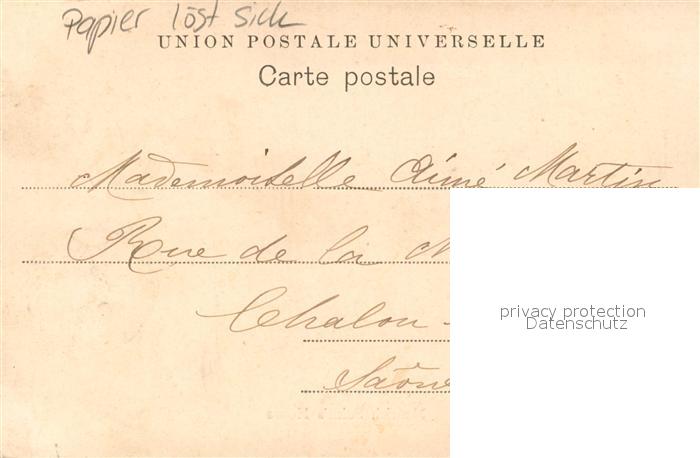 Papier löst sich
UNION POSTALE UNIVERSELLE
Carte postale
Mademoiselle Aimé Martin
Rue de la M
Chalon -
Saône
privacy protection
Datenschutz